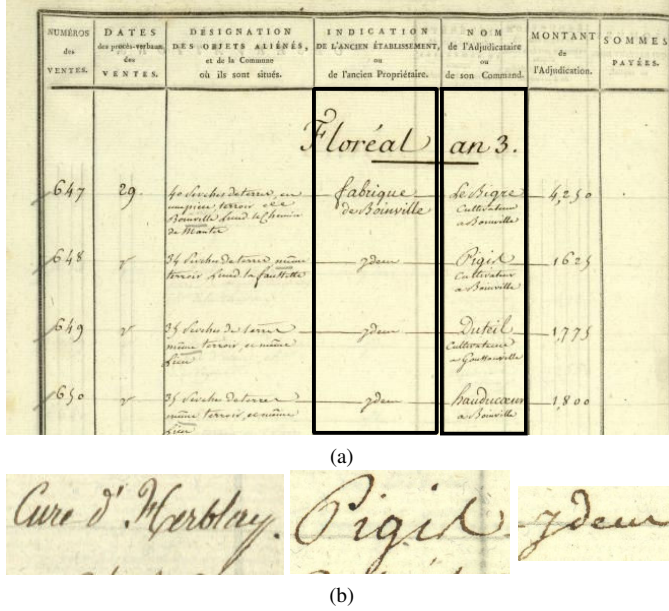 NUMÉROS
des
VENTES.
DATES
des procès-verbaux
des
VENTES.
DÉSIGNATION
DES OBJETS ALIÉNÉS,
et de la Commune
où ils sont situés.
INDICATION
DE L'ANCIEN ÉTABLISSEMENT,
ou
de l'ancien Propriétaire.
NOM
de l'Adjudicataire
ou
de son Command.
MONTANT
de
l'Adjudication.
SOMMES
PAYÉES.
Floréal an 3.
647
29.
40 Perches de terre, en
une pièce terroir de
Boinville le Chemin
de Mante
fabrique
de Boinville
Le Bigre
Cultivateur
a Boinville
4,250
648
34 Perches de terre, même
terroir
ydem
Pigis
Cultivateur
a Boinville
1625
649
35 Perches de terre
même terroir, et même
Lieu
ydem
Duteil
Cultivateur
a Goussonville
1,775
650
35 Perches de terre
même terroir, et même
Lieu
ydem
hauducoeur
a Boinville
1,800
(a)
Cure d'Herblay.
Pigis
ydem
(b)